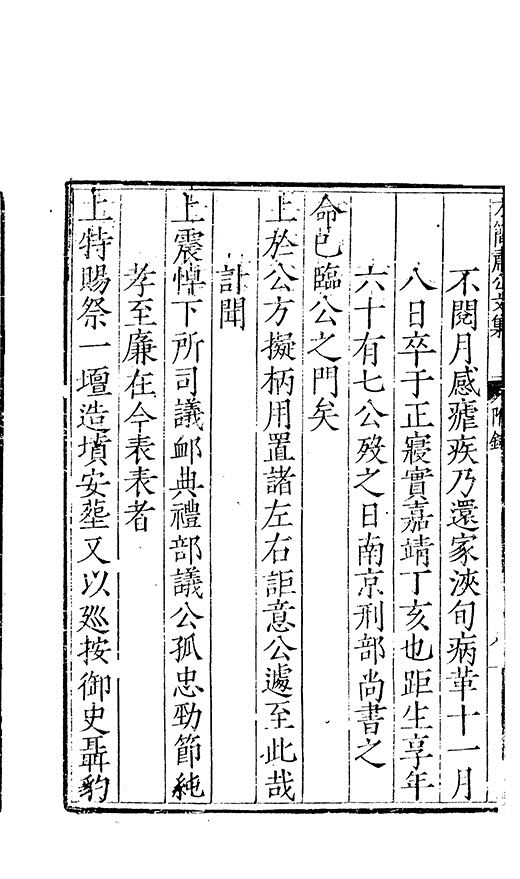 不閱月感瘧疾乃還家浹旬病革十一月
八日卒于正寢實嘉靖丁亥也距生享年
六十有七公歿之日南京刑部尚書之
命已臨公之門矣
上於公方擬柄用置諸左右詎意公遽至此哉
訃聞
上震悼下所司議卹典禮部議公孤忠勁節純
孝至廉在今表表者
上特賜祭一壇造墳安塟又以廵按御史聶豹